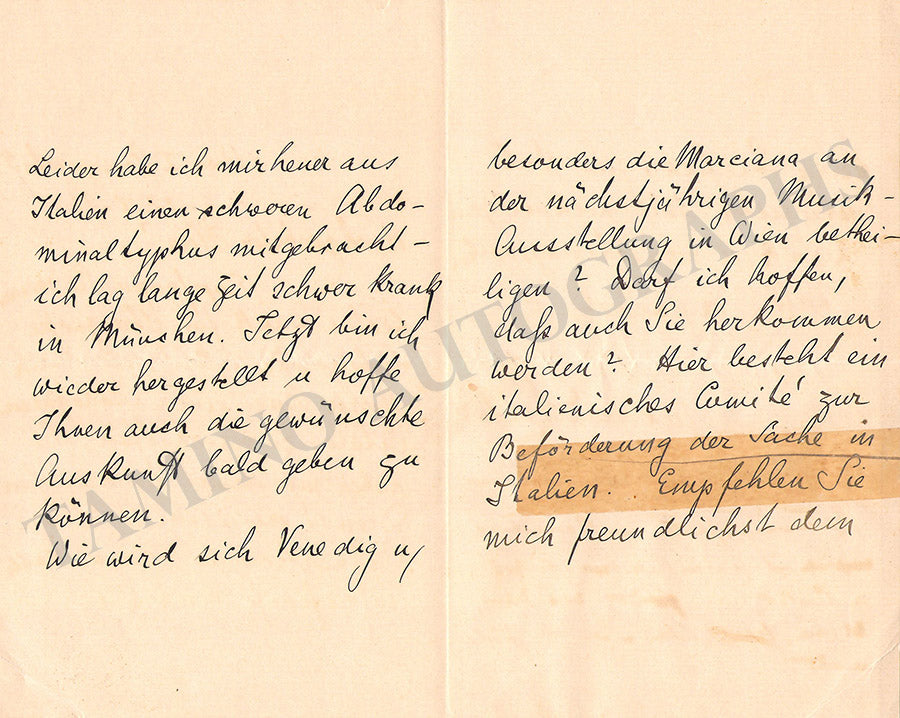 Leider habe ich mir heuer aus
Italien einen schweren Abdo-
minaltyphus mitgebracht -
ich lag lange Zeit schwer krank
in München. Jetzt bin ich
wieder hergestellt u hoffe
Ihnen auch die gewünschte
Auskunft bald geben zu
können.
Wie wird sich Venedig u,
besonders die Marciana an
der nächstjährigen Musik-
Ausstellung in Wien bethei-
ligen? Darf ich hoffen,
daß auch Sie herkommen
werden? Hier besteht ein
italienisches Comité zur
Beförderung der Sache in
Italien. . Empfehlen Sie
mich freundlichst dem
TAMINO AUTOGRAPHS